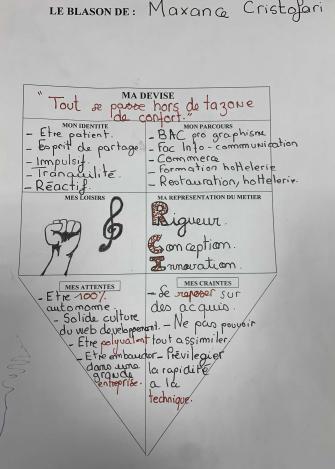 LE BLASON DE : Maxance Cristofari
MA DEVISE
"Tout se passe hors de ta zone
de confort."
MON IDENTITE
- Etre patient.
- Esprit de partage.
- Impulsif.
- Tranquilité.
- Réactif.
MON PARCOURS
- BAC pro graphisme
- Fac Info-communication
- Commerce
- Formation hottelerie
- Restauration, hottelerie.
MES LOISIRS
MA REPRESENTATION DU METIER
Rigueur.
Conception.
Innovation.
MES ATTENTES
- Etre 100%
autonome.
- Solide culture
du web developpement.
- Etre polyvalent
- Etre embaucher
dans une
grande
entreprise.
MES CRAINTES
- Se reposer sur
des acquis.
- Ne pas pouvoir
tout assimiler
- Prévilegier
la rapidité
a la
technique.